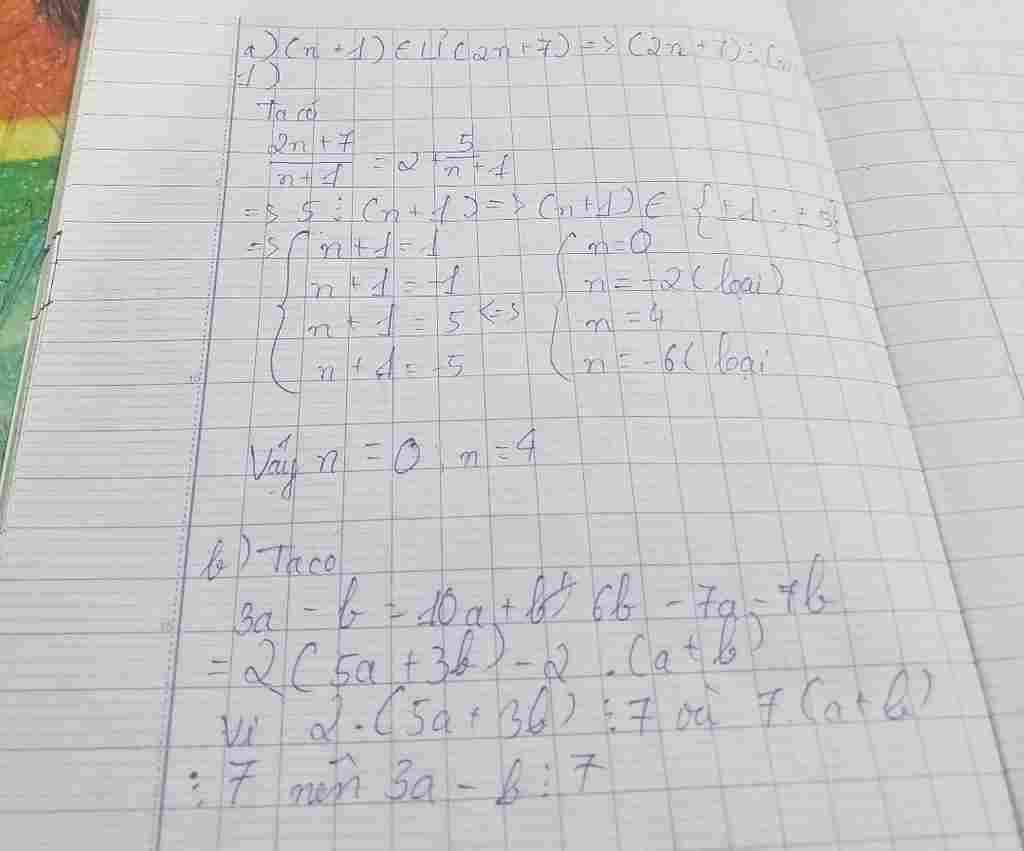 a) (n + 1) ∈ Ư (2n + 7) => (2n + 7) ⋮ (n
+1)
Ta có
2n + 7 / n + 1 = 2 + 5 / n + 1
=> 5 ⋮ (n + 1) => (n + 1) ∈ {±1; ±5}
=> { n + 1 = 1 { n = 0
n + 1 = -1 n = -2 (loại)
n + 1 = 5 <=> n = 4
n + 1 = -5 n = -6 ( loại
Vậy n = 0; n = 4
b) Ta có
3a - b = 10a + b + 6b - 7a - 7b
= 2 (5a + 3b) - 2 . (a + b)
Vì 2 . (5a + 3b) ⋮ 7 và 7. (a + b)
⋮ 7 nên 3a - b ⋮ 7